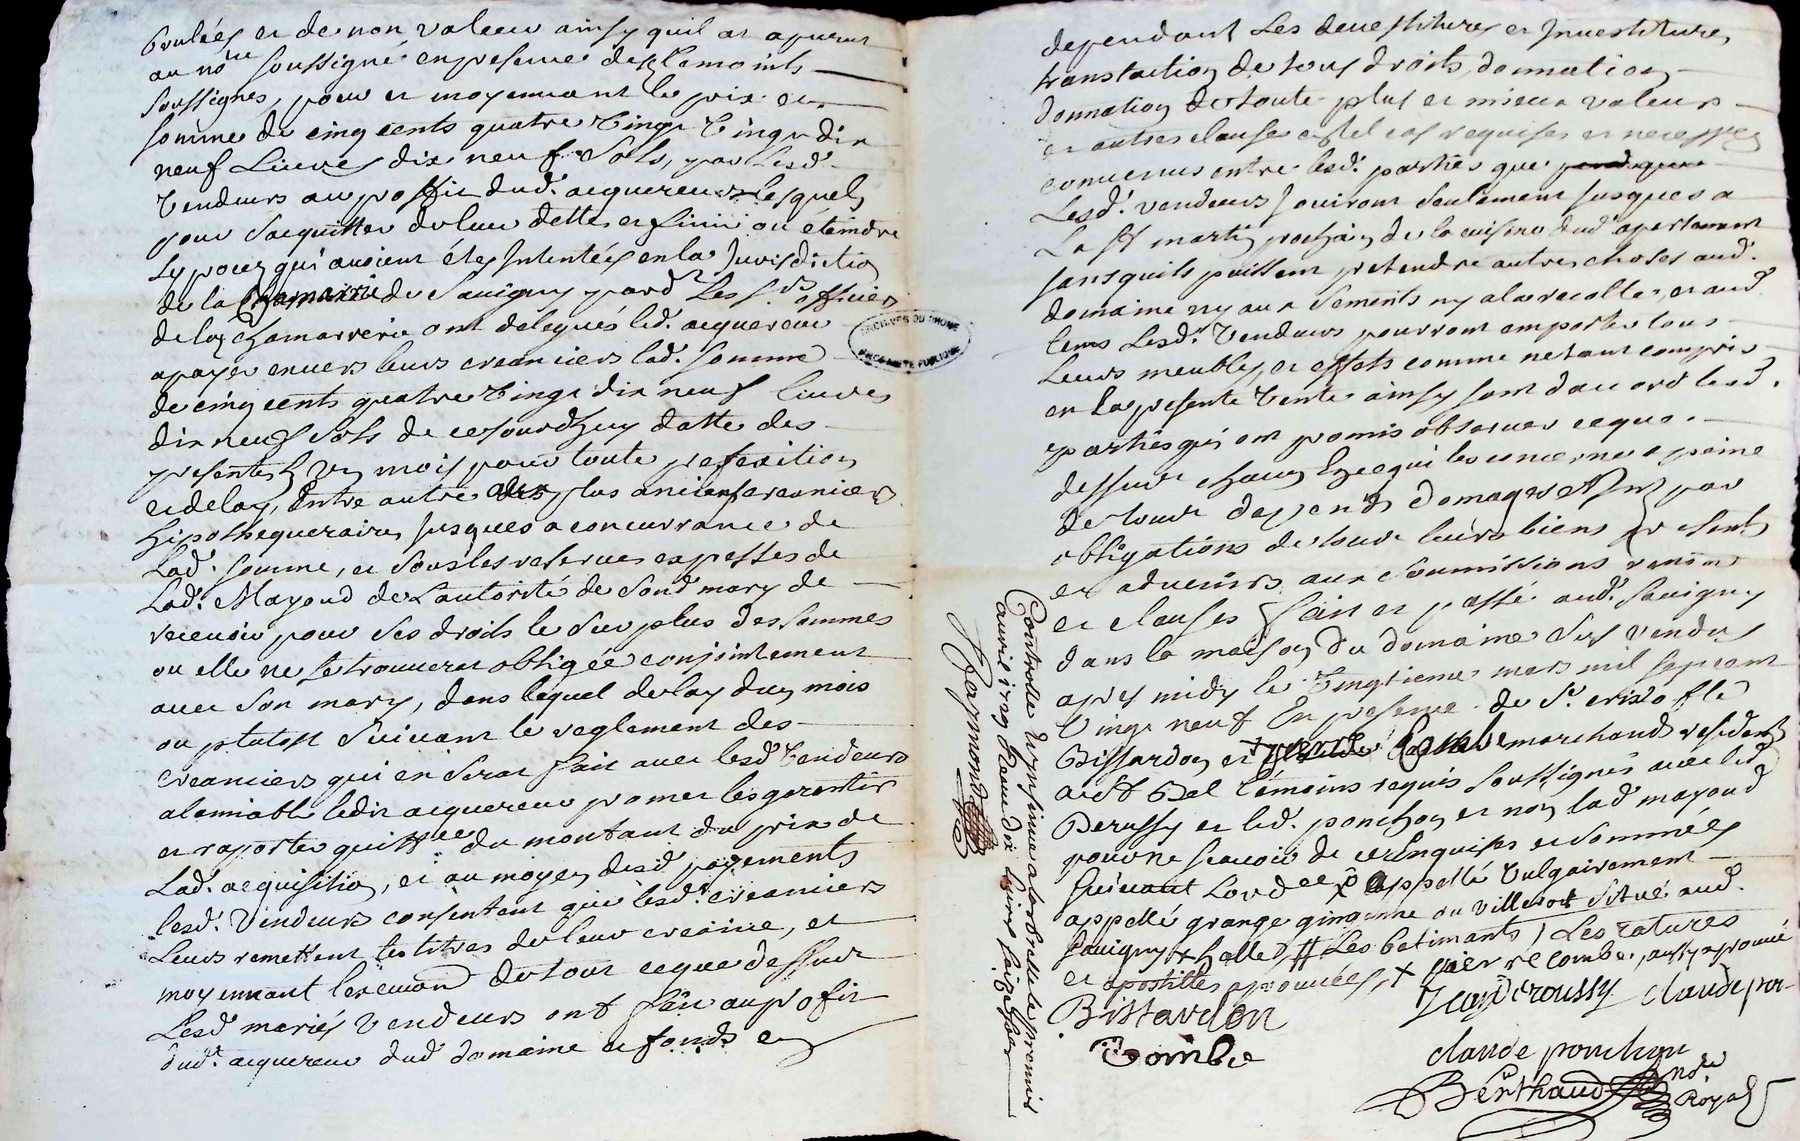 Brulées et de non valeur ainsy quil at aparut
au nore soussigné en presence des temoints
soussignes, pour et moyennant le prix et
somme de cinq cents quatre vingt
neuf Livres dix neuf sols, par lesd.
vendeurs au proffit dud. acquereur lesquels
pour sacquitter de leur dette et finir ou éteindre
qui avoient étés Intentées en la Jurisdiction
de la de Savigny pard. Les srs officiers
de la Chamarrerie ont delegués led. acquereur
a payer envers leurs creanciers lad. somme
de cinq cents quatre vingt dix neuf livres
dix neuf sols de cejourdhuy datte des
presentes En Un mois pour toute prefixition
et delay, Entre autre aux plus anciens creanciers
hipothequeraires jusques a concurrance de
Lad. somme, et sous les reserves expresses de
Lad. Mayoud de Lautorité de sond. mary de
recevoir pour ses droits le surplus des sommes
ou elle ne se trouverat obligée conjointement
avec son mary, dans lequel delay dun mois
ou plutost suivant le reglement des
creanciers qui en serat fait avec lesd. vendeurs
alamiable ledit acquereur promet les garentir
et raporter quittce du montant du prix de
Lad. acquisition, et au moyen desd. payements
lesd. vendeurs consentent que lesd. creanciers
Leurs remettent les titres de leur creance, et
moyennant de tout ce que dessus
Lesd. mariés vendeurs ont fait au profit
dud. acquereur dud. domaine et fonds en
dependant Les devestitures et Investitures
translation de tous droits, donnation
donnation de toute plus et mieux valeur
et autres clauses en tel cas requises et necessres
convenus entre lesd. parties que
Lesd. vendeurs jouiront seulement jusques a
La St martin prochain de la cuisine dud. apartement
sans quils puissent pretendre autres choses aud.
domaine ny aux sements ny a la recolte, et aud.
tems Lesd. vendeurs pourront emporter tous
Leurs meubles et effets comme netant compris
en La presente vente ainsy sont daccord lesd.
parties qui ont promis observer ce que
dessus chacun En ce qui les concerne a peine
de tous depends domages Intz par
obligations de tous leurs biens presents
et advenirs aux soumissions renonc
et clauses fait et passé aud. Savigny
dans la maison du domaine sus vendus
apres midy le vingtieme mars mil sept cent
vingt neuf En presence de Sr cristofle
Bissardon et Combe marchands residents
a St Bel temoins requis soussignés avec led.
Deroussy et led. ponchon et non lad. mayoud
pour ne scavoir de ce Enquises et sommées
suivant Lordce appellé vulgairement
appellé grange gingenne ou Villerot situé aud.
Savigny x halles # Les batimants / Les ratures
et apostilles aprouvées, x pierre Combe, aussy aprouvé
Bissardon
Jean Deroussy claude pon-
Combe
claude ponchon
Berthaud nore Royal
Controllé de presmier
avril 1729 Receu dix livres
Raymond
ARCHIVES DU RHONE
PROPRIETE PUBLIQUE